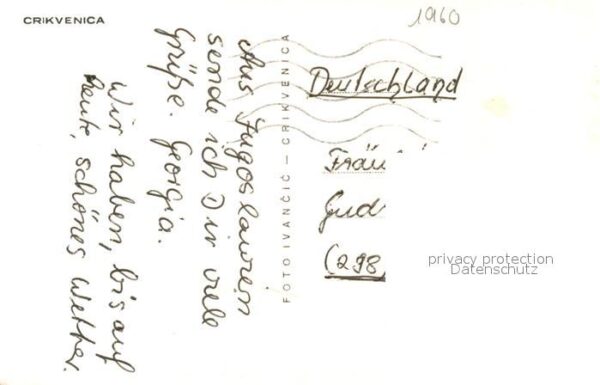 CRIKVENICA
1960
Aus Jugoslawien
sende ich Dir viele
Grüße. Georgia.
Wir haben, bis auf
heute, schönes Wetter.
FOTO IVANČIĆ – CRIKVENICA
Deutschland
Fräu
Gud
(298
privacy protection
Datenschutz